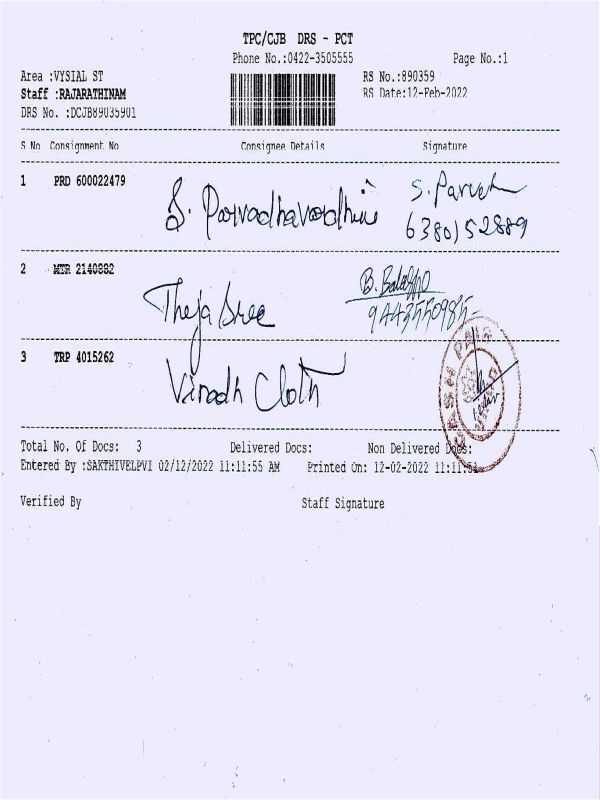 TPC/CJB DRS - PCT
Phone No.:0422-3505555 Page No.:1
Area :VYSIAL ST RS No.:890359
Staff :RAJARATHINAM RS Date:12-Feb-2022
DRS No. :DCJB89035901
S No Consignment No Consignee Details Signature
1 PRD 600022479 S. Parvadhavardhini S. Parvath
6380152889
2 MTR 2140882 Theja Sree
9443550985
3 TRP 4015262 Vinodh Cloth
CASH PAID
Total No. Of Docs: 3 Delivered Docs: Non Delivered Docs:
Entered By :SAKTHIVELPVI 02/12/2022 11:11:55 AM Printed On: 12-02-2022 11:11:51
Verified By Staff Signature